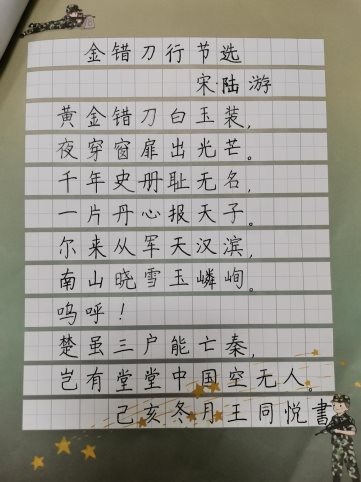 金错刀行节选
宋·陆游
黄金错刀白玉装,
夜穿窗扉出光芒。
千年史册耻无名,
一片丹心报天子。
尔来从军天汉滨,
南山晓雪玉嶙峋。
呜呼!
楚虽三户能亡秦,
岂有堂堂中国空无人。
己亥冬月王同悦書